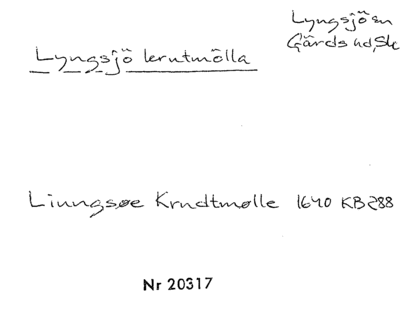 Lyngsjö sn
Gärds hd, Sk
Lyngsjö krutmölla
Liungsøe Krudtmølle 1640 KB 288
Nr 20317